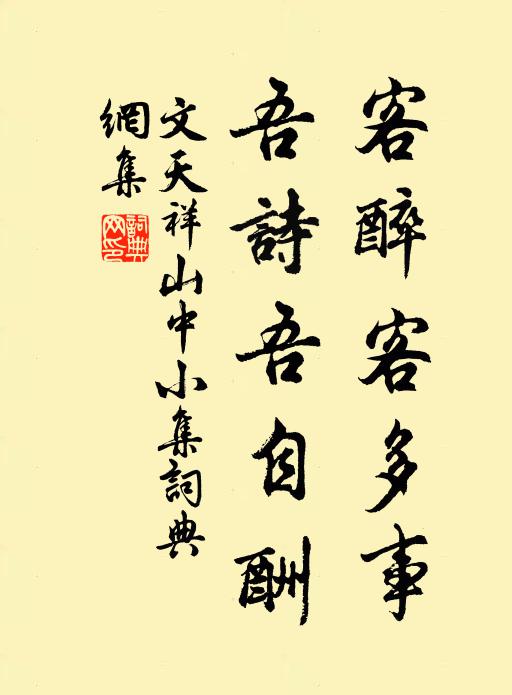 客醉客多事
吾詩吾自酬
文天祥山中小集詞典
網集
詞典
网印